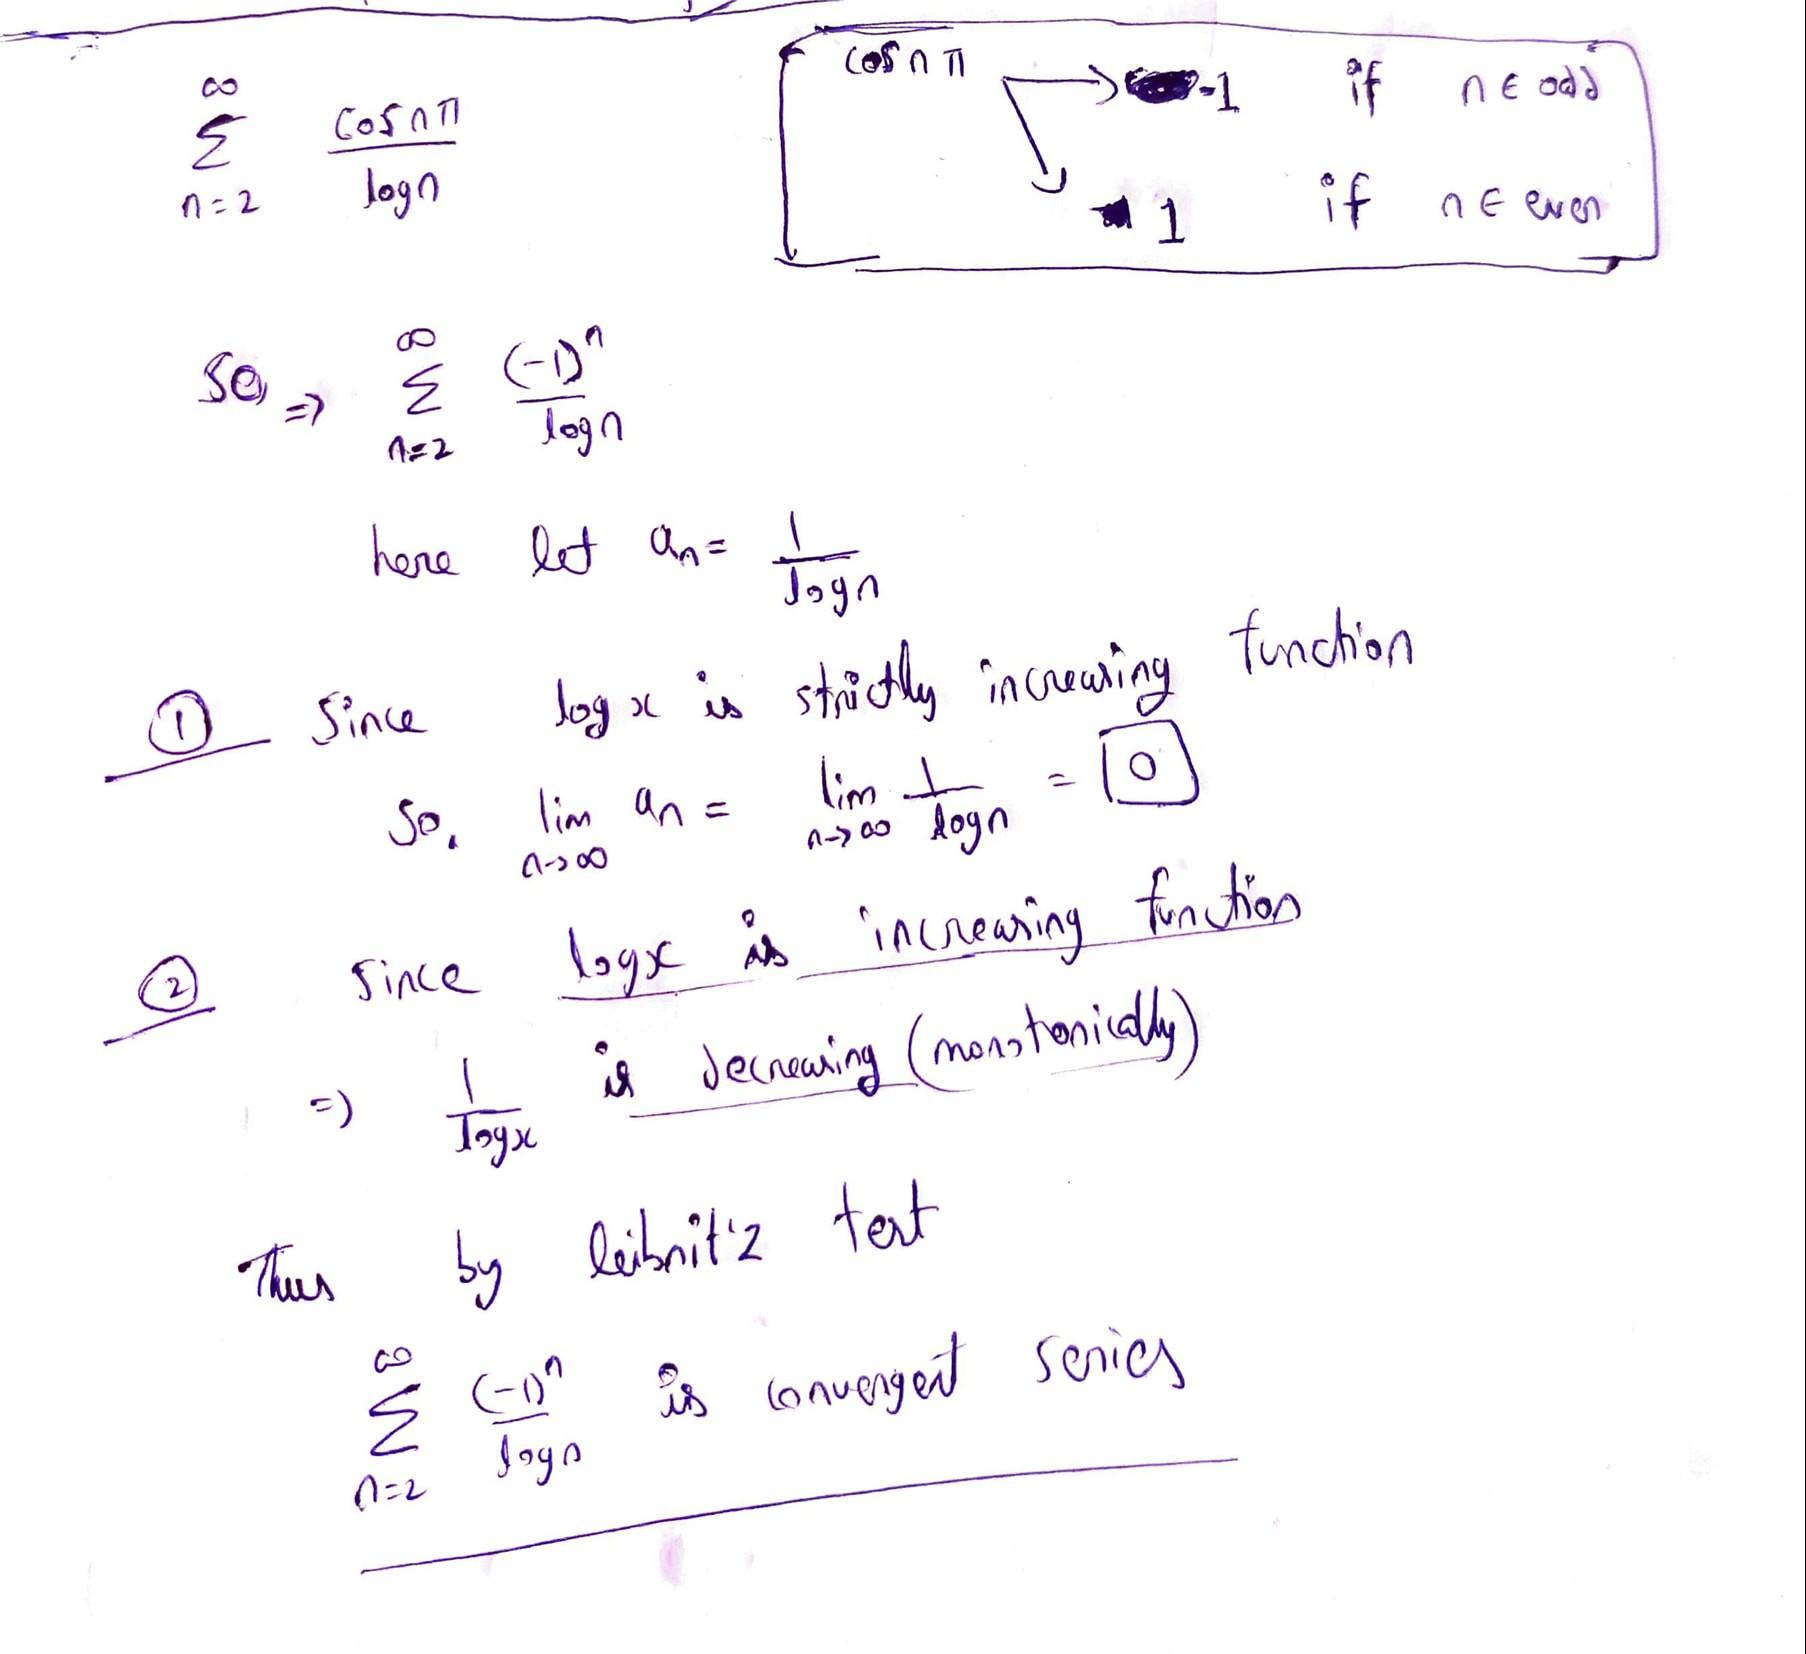 ∞
Σ cos nπ / log n
n=2
cos nπ → -1 if n ∈ odd
↘ 1 if n ∈ even
So, ⇒ ∞ Σ n=2 (-1)^n / log n
here let an = 1 / log n
① Since log x is strictly increasing function
So, lim n→∞ an = lim n→∞ 1 / log n = 0
② Since log x is increasing function
⇒ 1 / log x is decreasing (monotonically)
Thus by leibnit'z test
∞ Σ n=2 (-1)^n / log n is convergent series